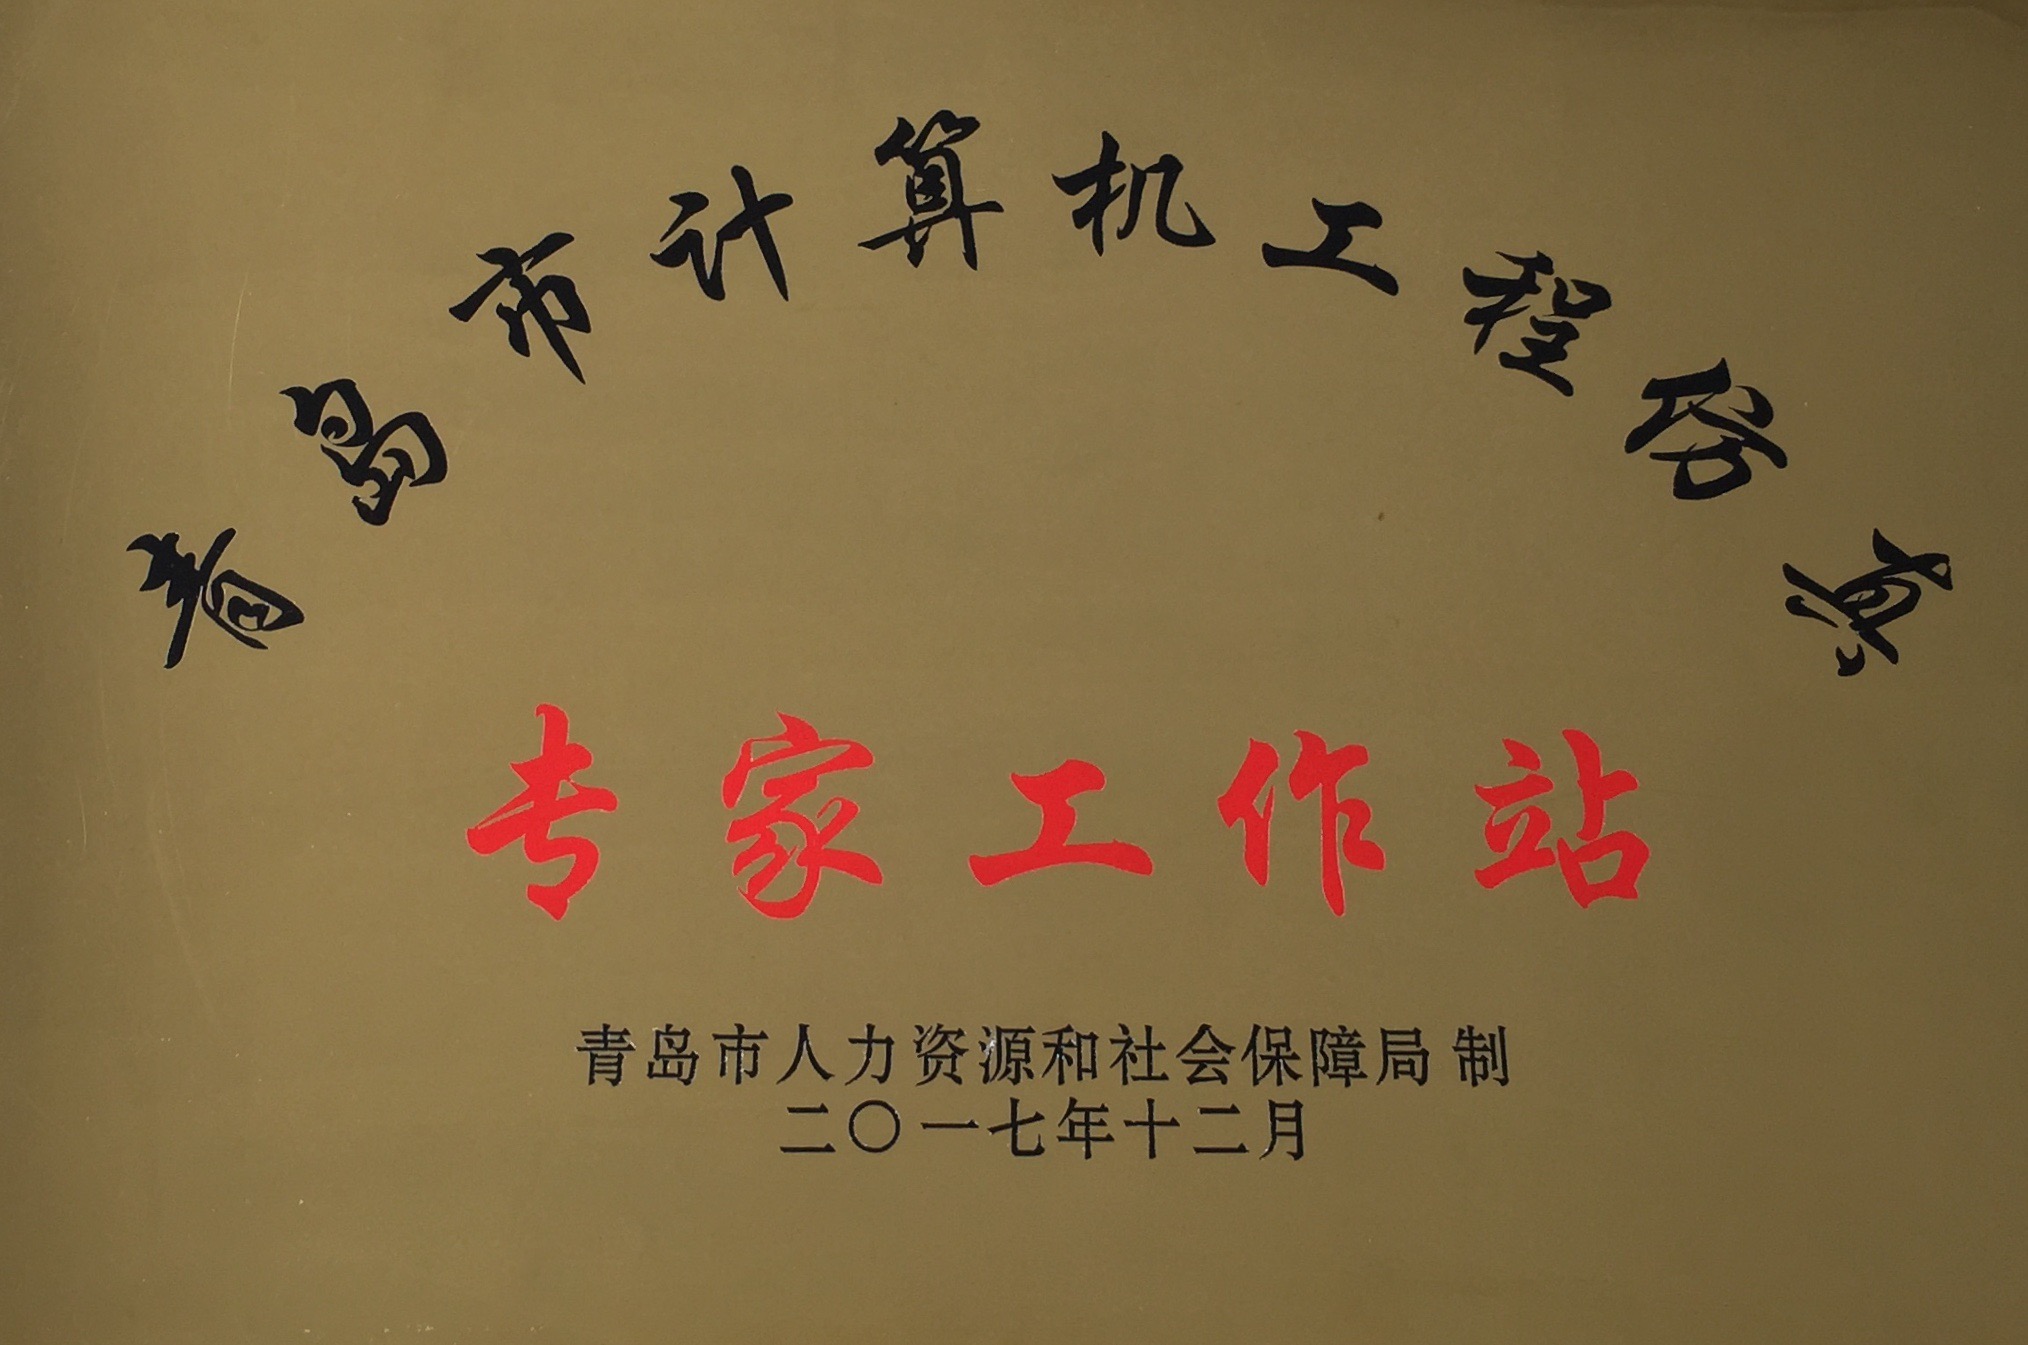 青岛市计算机工程仿真
专家工作站
青岛市人力资源和社会保障局 制
二〇一七年十二月